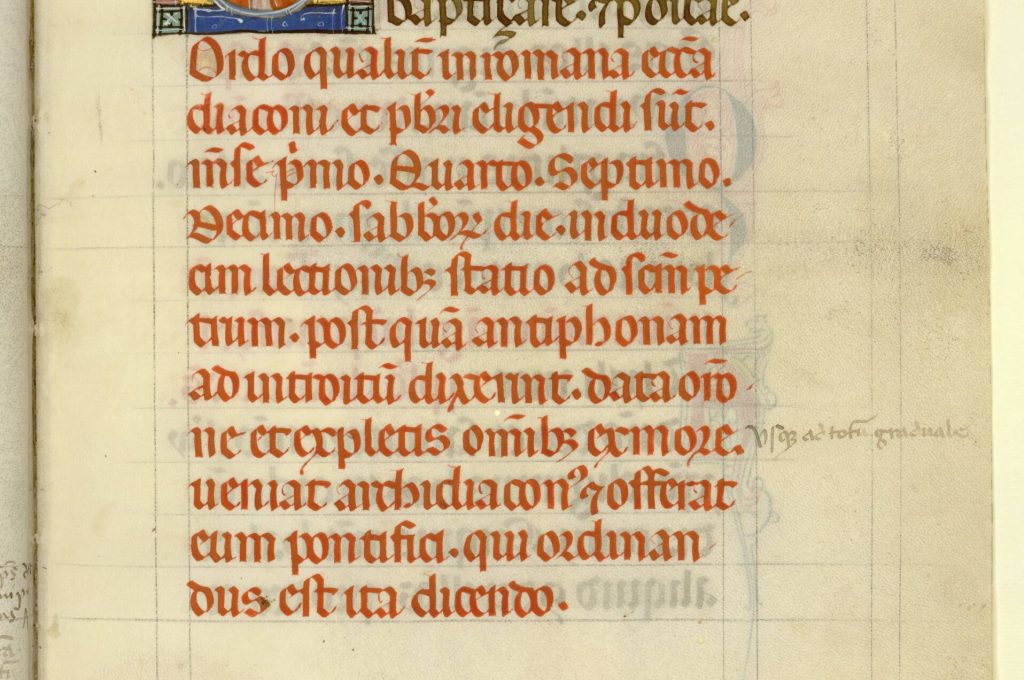 baptiçare. ⁊ p̄dicãe.
Ordo qualit̃ in romana ecc̃a
diaconi et pb̃ri eligendi sũt.
m̃se p̃mo. Quarto. Septimo.
Decimo. sabb̃oꝝ die. in duode-
cim lectionibꝫ statio ad sc̃m pe-
trum. post quã antiphonam
ad introitũ dixerint. data or̃o-
ne et expletis om̃ibꝫ ex more. vsqꝫ ad totũ graduale
ueniat archidiaconꝰ ⁊ offerat
eum pontifici. qui ordinan
dus est ita dicendo.